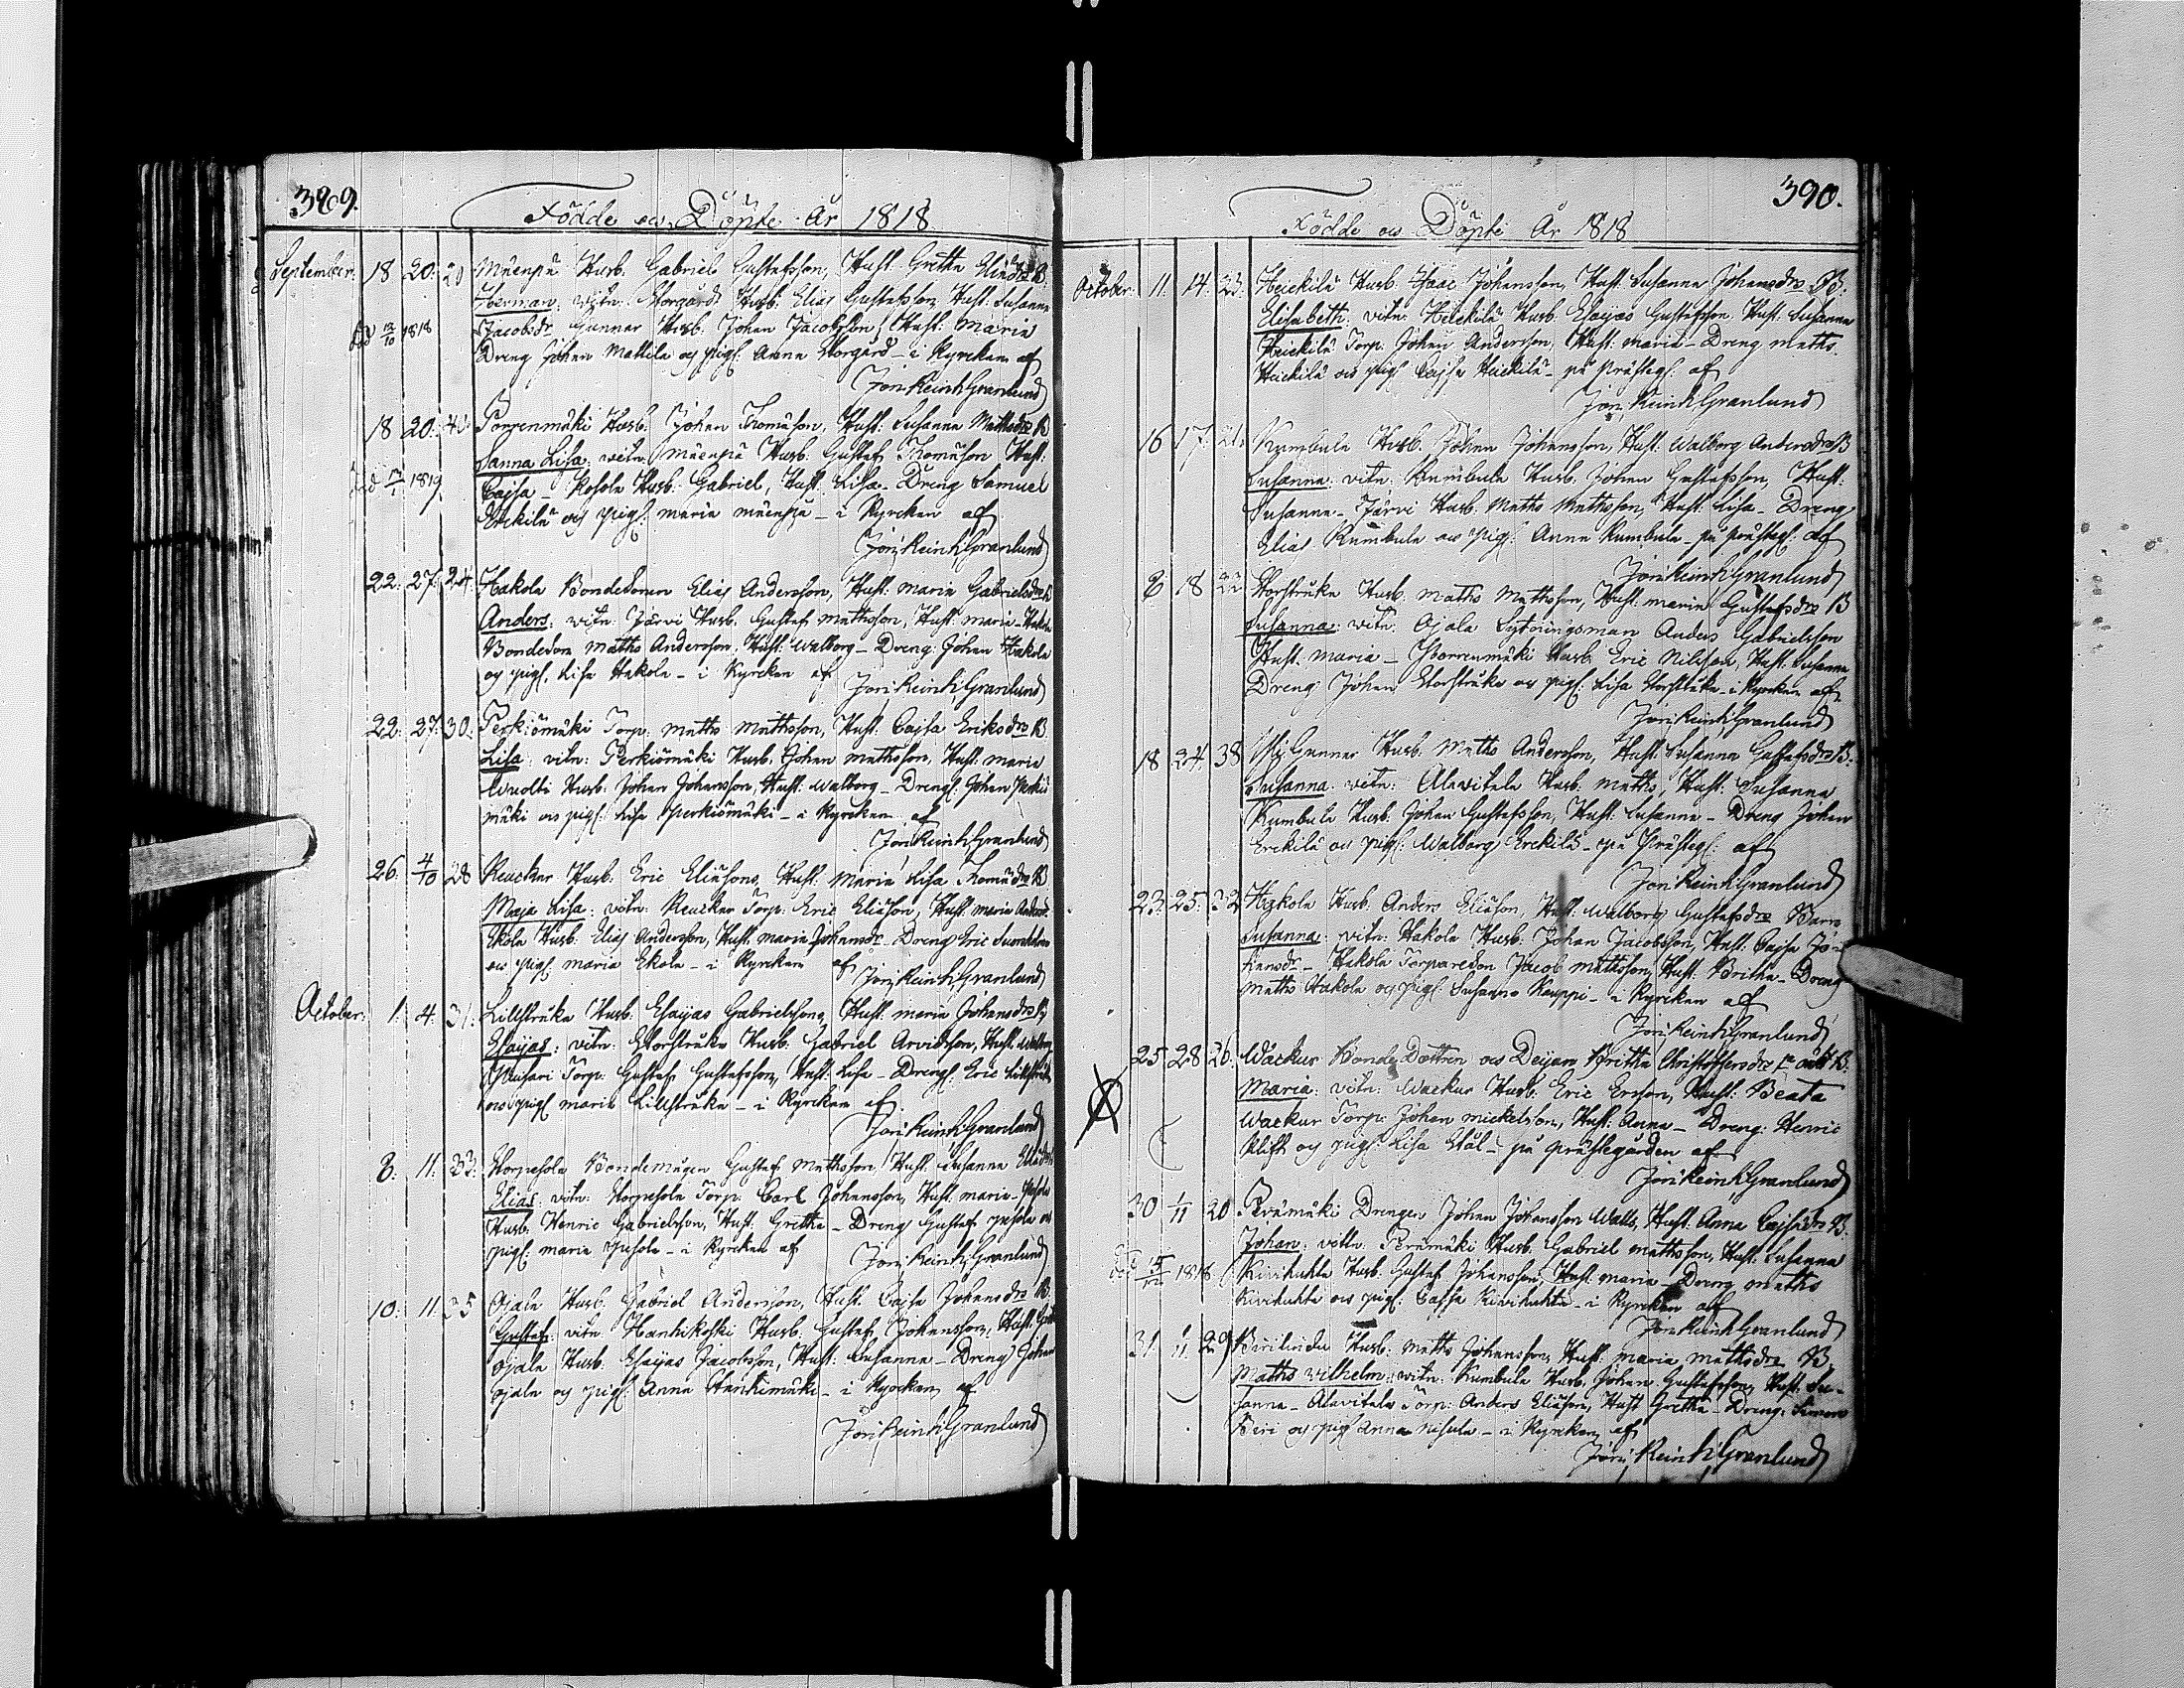 389.
Födde och Döpte År 1818
September. 18 20. 29 Mäenpä Husb. Gabriel Gustafsson, Hust. Gretha Eliædr B.
Herman. vitn. Storgård Husb. Elias Gustafsson Hust. Susanna
död 12/10 1818 Jacobsdr Gunnar Husb. Johan Jacobsson, Hust. Maria
Dreng Johan Mattila och pig. Anna Storgård - i Kyrckan af
Jöri Reinh Granlund
18 20. 40. Porrenmäki Husb. Johan Thomäson, Hust. Susanna Mathsdr B
Sanna Lisa. vitn. Mäenpä Husb. Gustaf Thomäson Hust.
1819 Cajsa - Husb. Gabriel, Hust. Lisa - Dreng Samuel
Erckilä och pig. Maria Mäenpä - i Kyrckan af
Jöri Reinh Granlund
22. 27. 24. Hakola Bondesonen Elias Andersson, Hust. Maria Gabrielsdr B
Anders. vitn. Järvi Husb. Gustaf Mathsson, Hust. Maria - Hakola
Bondeson Maths Andersson, Hust. Walborg - Dreng. Johan Hakola
och pig. Lisa Hakola - i Kyrckan af Jöri Reinh Granlund
22. 27. 30. Perkiömäki Torp. Maths Mathsson, Hust. Cajsa Eriksdr B
Lisa. vitn. Perkiömäki Husb. Johan Mathsson, Hust. Maria
Husb. Johan Johansson, Hust. Walborg - Dreng. Johan Perkiö
mäki och pig. Lisa Perkiömäki - i Kyrckan af
Jöri Reinh Granlund
26. 4/10 28 Husb. Eric Eliäson, Hust. Maria Lisa Thomädr B
Maja Lisa. vitn. Torp. Eric Eliäson, Hust. Maria Andersdr
Ekola Husb. Elias Andersson, Hust. Maria Johansdr - Dreng Eric
och pig. Maria Ekola - i Kyrckan af Jöri Reinh Granlund
October. 1. 4. 31. Lillstråka Husb. Esaijas Gabrielsson, Hust. Maria Johansdr B
Esaijas. vitn. Storstråka Husb. Gabriel Arvidsson, Hust. Walborg
Torp. Gustaf Gustafsson, Hust. Lisa - Dreng. Eric Lillstråk
och pig. Maria Lillstråka - i Kyrckan af
Jöri Reinh Granlund
8. 11. 33. Bondemågen Gustaf Mathsson, Hust. Susanna Eliædr
Elias. vitn. Torp. Carl Johansson, Hust. Maria -
Husb. Henric Gabrielsson, Hust. Gretha - Dreng Gustaf och
pig. Maria - i Kyrckan af Jöri Reinh Granlund
10. 11. 35 Ojala Husb. Gabriel Andersson, Hust. Cajsa Johansdr B.
Gustaf. vitn. Hanhikoski Husb. Gustaf Johansson, Hust.
Ojala Husb. Esaijas Jacobsson, Hust. Susanna - Dreng Johan
Ojala och pig. Anna Hanhimäki - i Kyrckan af
Jöri Reinh Granlund
390.
Födde och Döpte År 1818
October. 11. 14. 23. Heickilä Husb. Isaac Johansson, Hust. Susanna Johansdr B.
Elisabeth. vitn. Heickilä Husb. Esaijas Gustafsson, Hust. Susanna
Heickilä Torp. Johan Andersson, Hust. Maria - Dreng Maths
Heickilä och pig. Cajsa Heickilä - på Prästeg. af
Jöri Reinh Granlund
16 17. 21. Kumbula Husb. Johan Johansson, Hust. Walborg Andersdr B
Susanna. vitn. Kumbula Husb. Johan Gustafsson, Hust.
Susanna - Järvi Husb. Maths Mathsson, Hust. Lisa - Dreng
Elias Kumbula och pig. Anna Kumbula - på prästeg. af
Jöri Reinh Granlund
8 18 22 Storstråka Husb. Maths Mathsson, Hust. Maria Gustafsdr B
Susanna. vitn. Ojala Sytningsman Anders Gabrielsson
Hust. Maria - Porrenmäki Husb. Eric Nilsson, Hust. Susanna
Dreng Johan Storstråka och pig. Lisa Storstråka - i Kyrckan af
Jöri Reinh Granlund
18 24. 38 Gunnar Husb. Maths Andersson, Hust. Susanna Gustafsdr B.
Susanna. vitn. Alavitala Husb. Maths, Hust. Susanna
Kumbula Husb. Johan Gustafsson, Hust. Susanna - Dreng Johan
Erckilä och pig. Walborg Erckilä - på Prästeg. af
Jöri Reinh Granlund
23. 25. 32 Hakola Husb. Anders Eliäson, Hust. Walborg Gustafsdr Barn
Susanna. vitn. Hakola Husb. Johan Jacobsson, Hust. Cajsa Jo-
hansdr - Hakola Torpareson Jacob Mathsson, Hust. Britha - Dreng
Maths Hakola och pig. Susanna Kauppi - i Kyrckan af
Jöri Reinh Granlund
25 28 26. Wäckar Bonde Dottren och Deijan Britha Christophersdr B.
Maria. vitn. Wäckar Husb. Eric Ersson, Hust. Beata
Wäckar Torp. Johan Mickelsson, Hust. Anna - Dreng. Henric
Klift och pig. Lisa Stål - på prästegården af
Jöri Reinh Granlund
30 1/11 20 Perämäki Drengen Johan Johansson Walls, Hust. Anna Cajsa B.
Johan. vittn. Perämäki Husb. Gabriel Mathsson, Hust. Susanna
1818 Kivihuhta Husb. Gustaf Johansson, Hust. Maria - Dreng Maths
Kivihuhta och pig. Cajsa Kivihuhta - i Kyrckan af
Jöri Reinh Granlund
31. 1/11. 29 Husb. Maths Johansson, Hust. Maria Mathsdr B.
Maths Wilhelm. vitn. Kumbula Husb. Johan Gustafsson, Hust. Su-
sanna - Alavitala Torp. Anders Eliäson, Hust Gretha - Dreng. Simon
och pig Anna - i Kyrckan af
Jöri Reinh Granlund